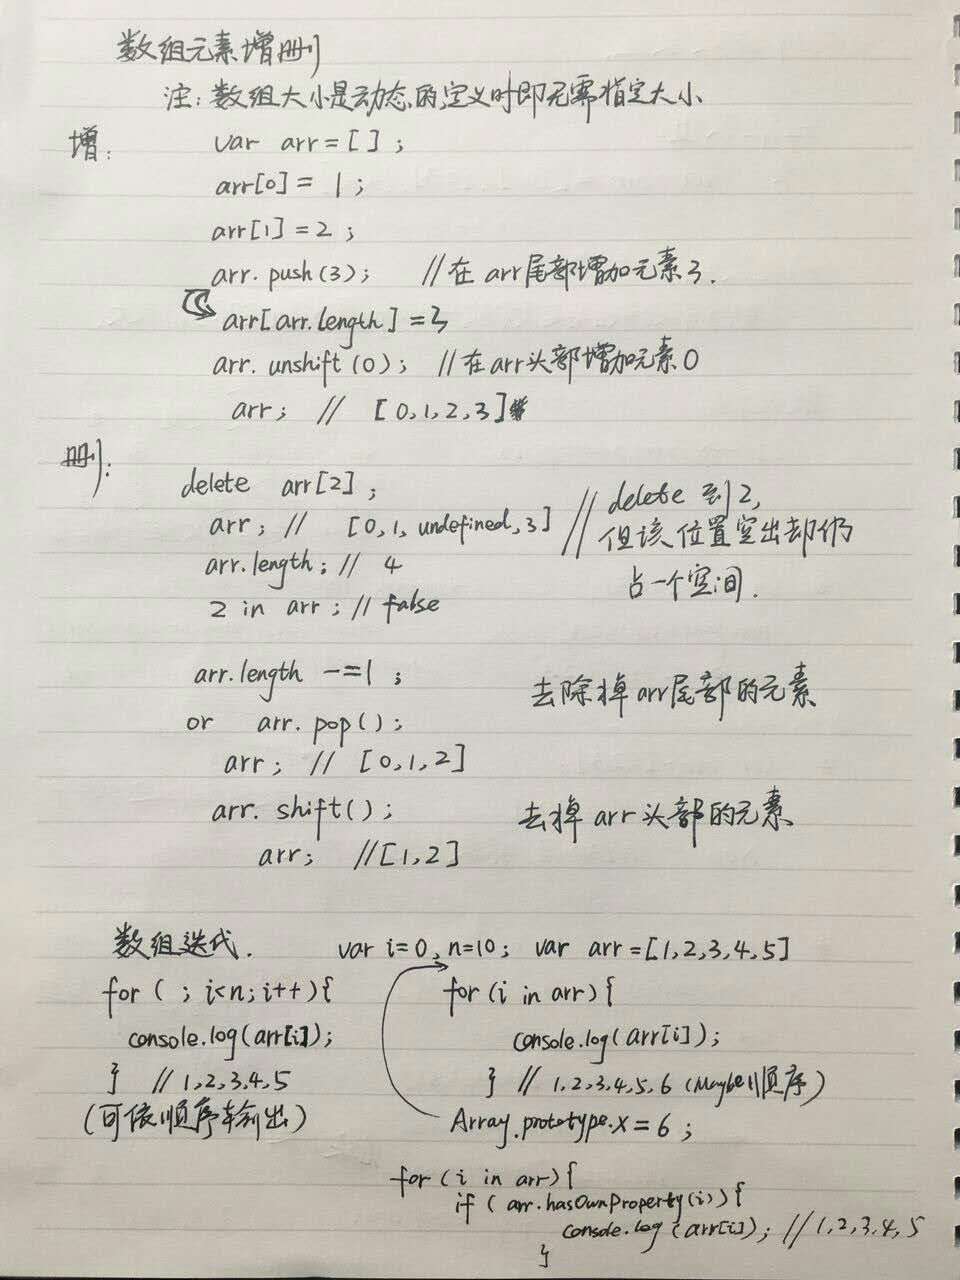 数组元素增删
注:数组大小是动态的,定义时即无需指定大小
增:
var arr = [ ] ;
arr[0] = 1 ;
arr[1] = 2 ;
arr.push(3); //在arr尾部增加元素3.
arr[arr.length] = 3
arr.unshift(0); //在arr头部增加元素0
arr; // [0,1,2,3]
删:
delete arr[2] ;
arr; // [0,1,undefined,3]
arr.length; // 4
2 in arr ; // false
// delete 到2,
但该位置空出却仍
占一个空间.
arr.length -=1 ; 去除掉arr尾部的元素
or arr.pop();
arr; // [0,1,2]
arr.shift(); 去掉arr头部的元素
arr; //[1,2]
数组迭代. var i=0,n=10; var arr=[1,2,3,4,5]
for ( ; i<n;i++){
console.log(arr[i]);
} // 1,2,3,4,5
(可依顺序输出)
for(i in arr){
console.log(arr[i]);
} // 1,2,3,4,5,6 (Maybe顺序)
Array.prototype.x = 6 ;
for (i in arr){
if ( arr.hasOwnProperty(i)){
console.log (arr[i]); //1,2,3,4,5
}